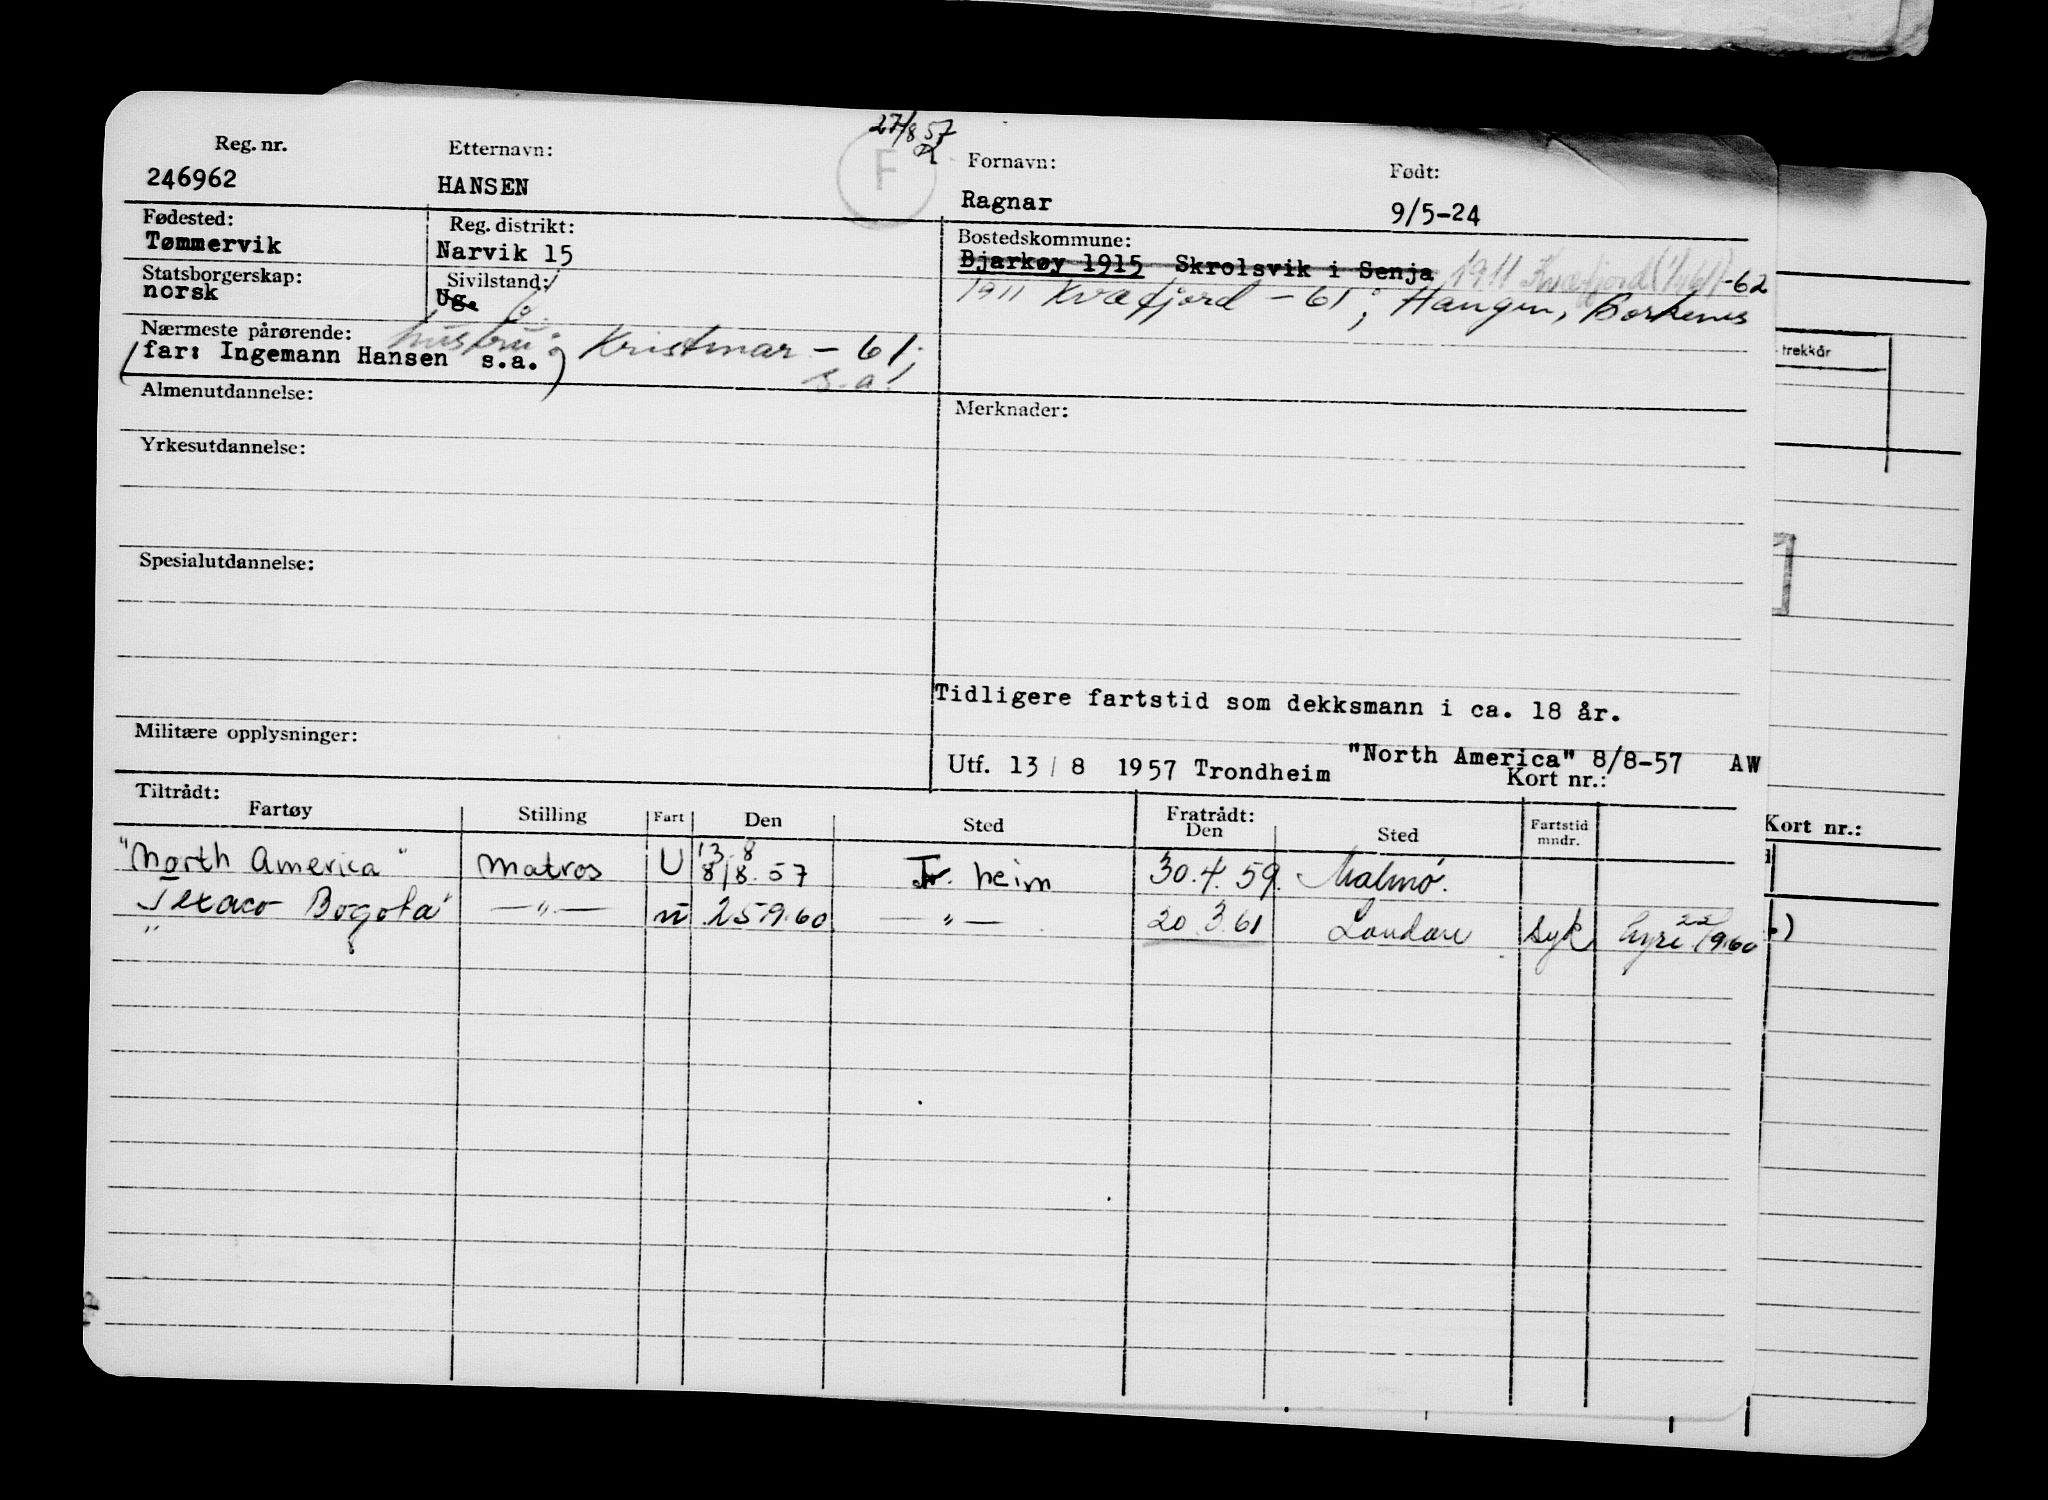 27/8 57
F
Reg. nr.
246962
Etternavn:
HANSEN
Fornavn:
Ragnar
Født:
9/5-24
Fødested:
Tømmervik
Reg. distrikt:
Narvik 15
Bostedskommune:
Bjarkøy 1915 Skrolsvik i Senja 1911 Kvæfjord (1/1 61) -62
1911 Kvæfjord - 61; Haugen, Borkenes
Statsborgerskap:
norsk
Sivilstand:
Ug.
Nærmeste pårørende:
hustru: Kristmar - 61;
s.a.
(far: Ingemann Hansen s.a.)
Almenutdannelse:
Merknader:
Yrkesutdannelse:
Spesialutdannelse:
Tidligere fartstid som dekksmann i ca. 18 år.
Militære opplysninger:
"North America" 8/8-57 AW
Utf. 13/8 1957 Trondheim
Kort nr.:
Tiltrådt:
Fartøy Stilling Fart Den Sted Fratrådt: Den Sted Fartstid mndr.
13.8
"North America" Matros U 8/8.57 Tr. heim 30.4.59. Malmø.
"Texaco Bogota" —"— U 25.9.60 —"— 20.3.61 London syk hyre 22/9.60
trekkår
Kort nr.: